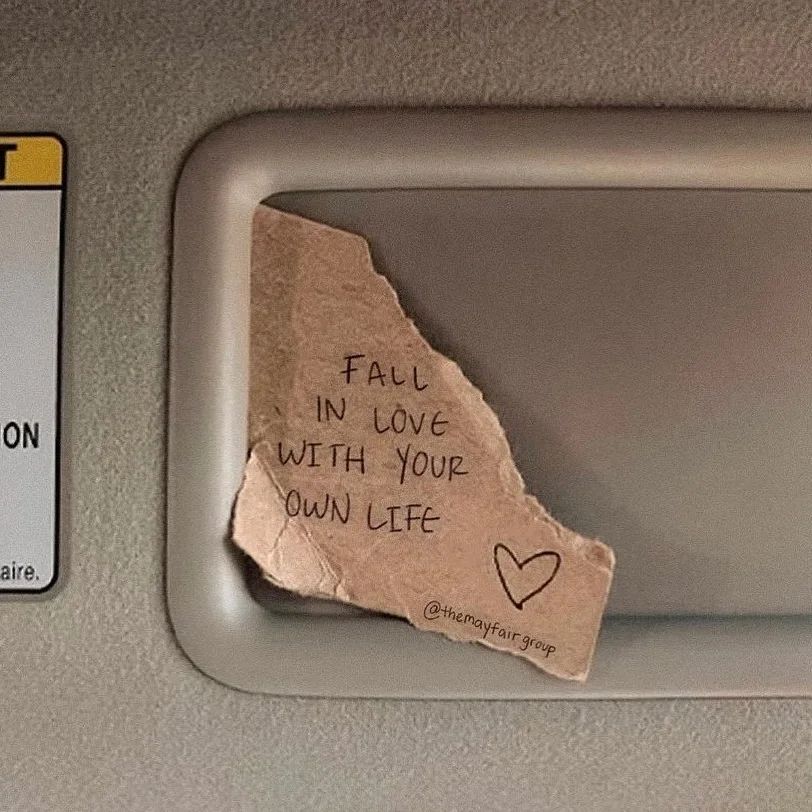 T
ON
aire.
FALL
IN LOVE
WITH YOUR
OWN LIFE
@themayfairgroup